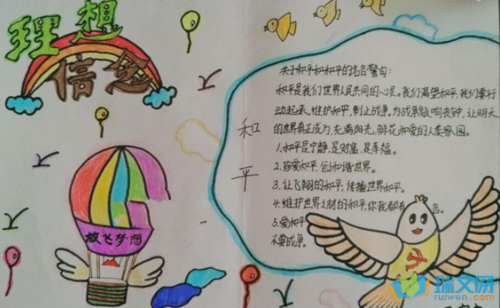 理想
信念
放飞梦想
和平
关于和平和和平的名言警句:
和平是我们世界人民共同的心灵。我们渴望和平,我们要行
动起来,维护和平,制止战争。为战争敲响丧钟,让明天
的世界真正成为,充满阳光,鲜花和爱的人类家园。
1.和平是宁静,是财富,是幸福。
2.珍爱和平,创和谐世界。
3.让飞翔的和平,传播世界和平。
4.维护世界之树的和平,你我都有
5.爱和平
不要战争。
瑞文网
ruiwen.com